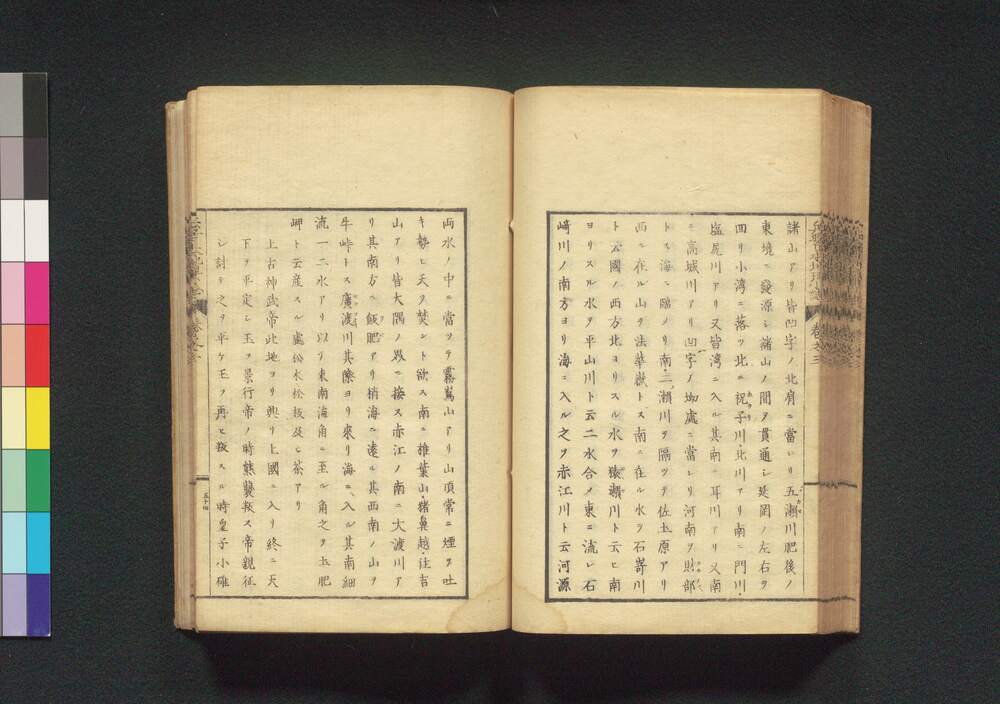 諸山アリ皆凹字ノ北肩ニ當レリ五瀬川肥後ノ
東境ニ發源シ諸山ノ間ヲ貫通シ延岡ノ左右ヲ
四リ小湾ニ落ツ北ニ祝子川北川アリ南ニ門川
塩尻川アリ又皆湾ニ入ル其南ニ耳川アリ又南
ニ高城川アリ凹字ノ坳處ニ當レリ河南ヲ財部
トス海ニ臨メリ南一ノ瀬川ヲ隔ツテ佐土原アリ
西ニ在ル山ヲ法華嶽トス南ニ在ル水ヲ石嵜川
ト云國ノ西方北ヨリスル水ヲ猿瀬川ト云ヒ南
ヨリスル水ヲ平山川ト云二水合メ東ニ流レ石
﨑川ノ南方ヨリ海ニ入ル之ヲ赤江川ト云河源
両水ノ中ニ當ツテ霧嶌山アリ山頂常ニ煙ヲ吐
キ勢ヒ天ヲ焚ント欲ス南ニ椎葉山猪鼻越徃吉
山アリ皆大隅ノ界ニ接ス赤江ノ南ニ大渡川ア
リ其南方ニ飯肥アリ稍海ニ遠ル其西南ノ山ヲ
牛峠トス廣渡川其際ヨリ來リ海ニ入ル其南細
流一二水アリ以テ東南海角ニ至ル角之ヲ土肥
岬ト云産スル處松水松板及ヒ茶アリ
上古神武帝此地ヨリ興リ上國ニ入リ終ニ天
下ヲ平定シ玉フ景行帝ノ時熊襲叛ス帝親征
シ討テ之ヲ平ケ玉フ再ヒ叛スル時皇子小碓
卷之三
五十四